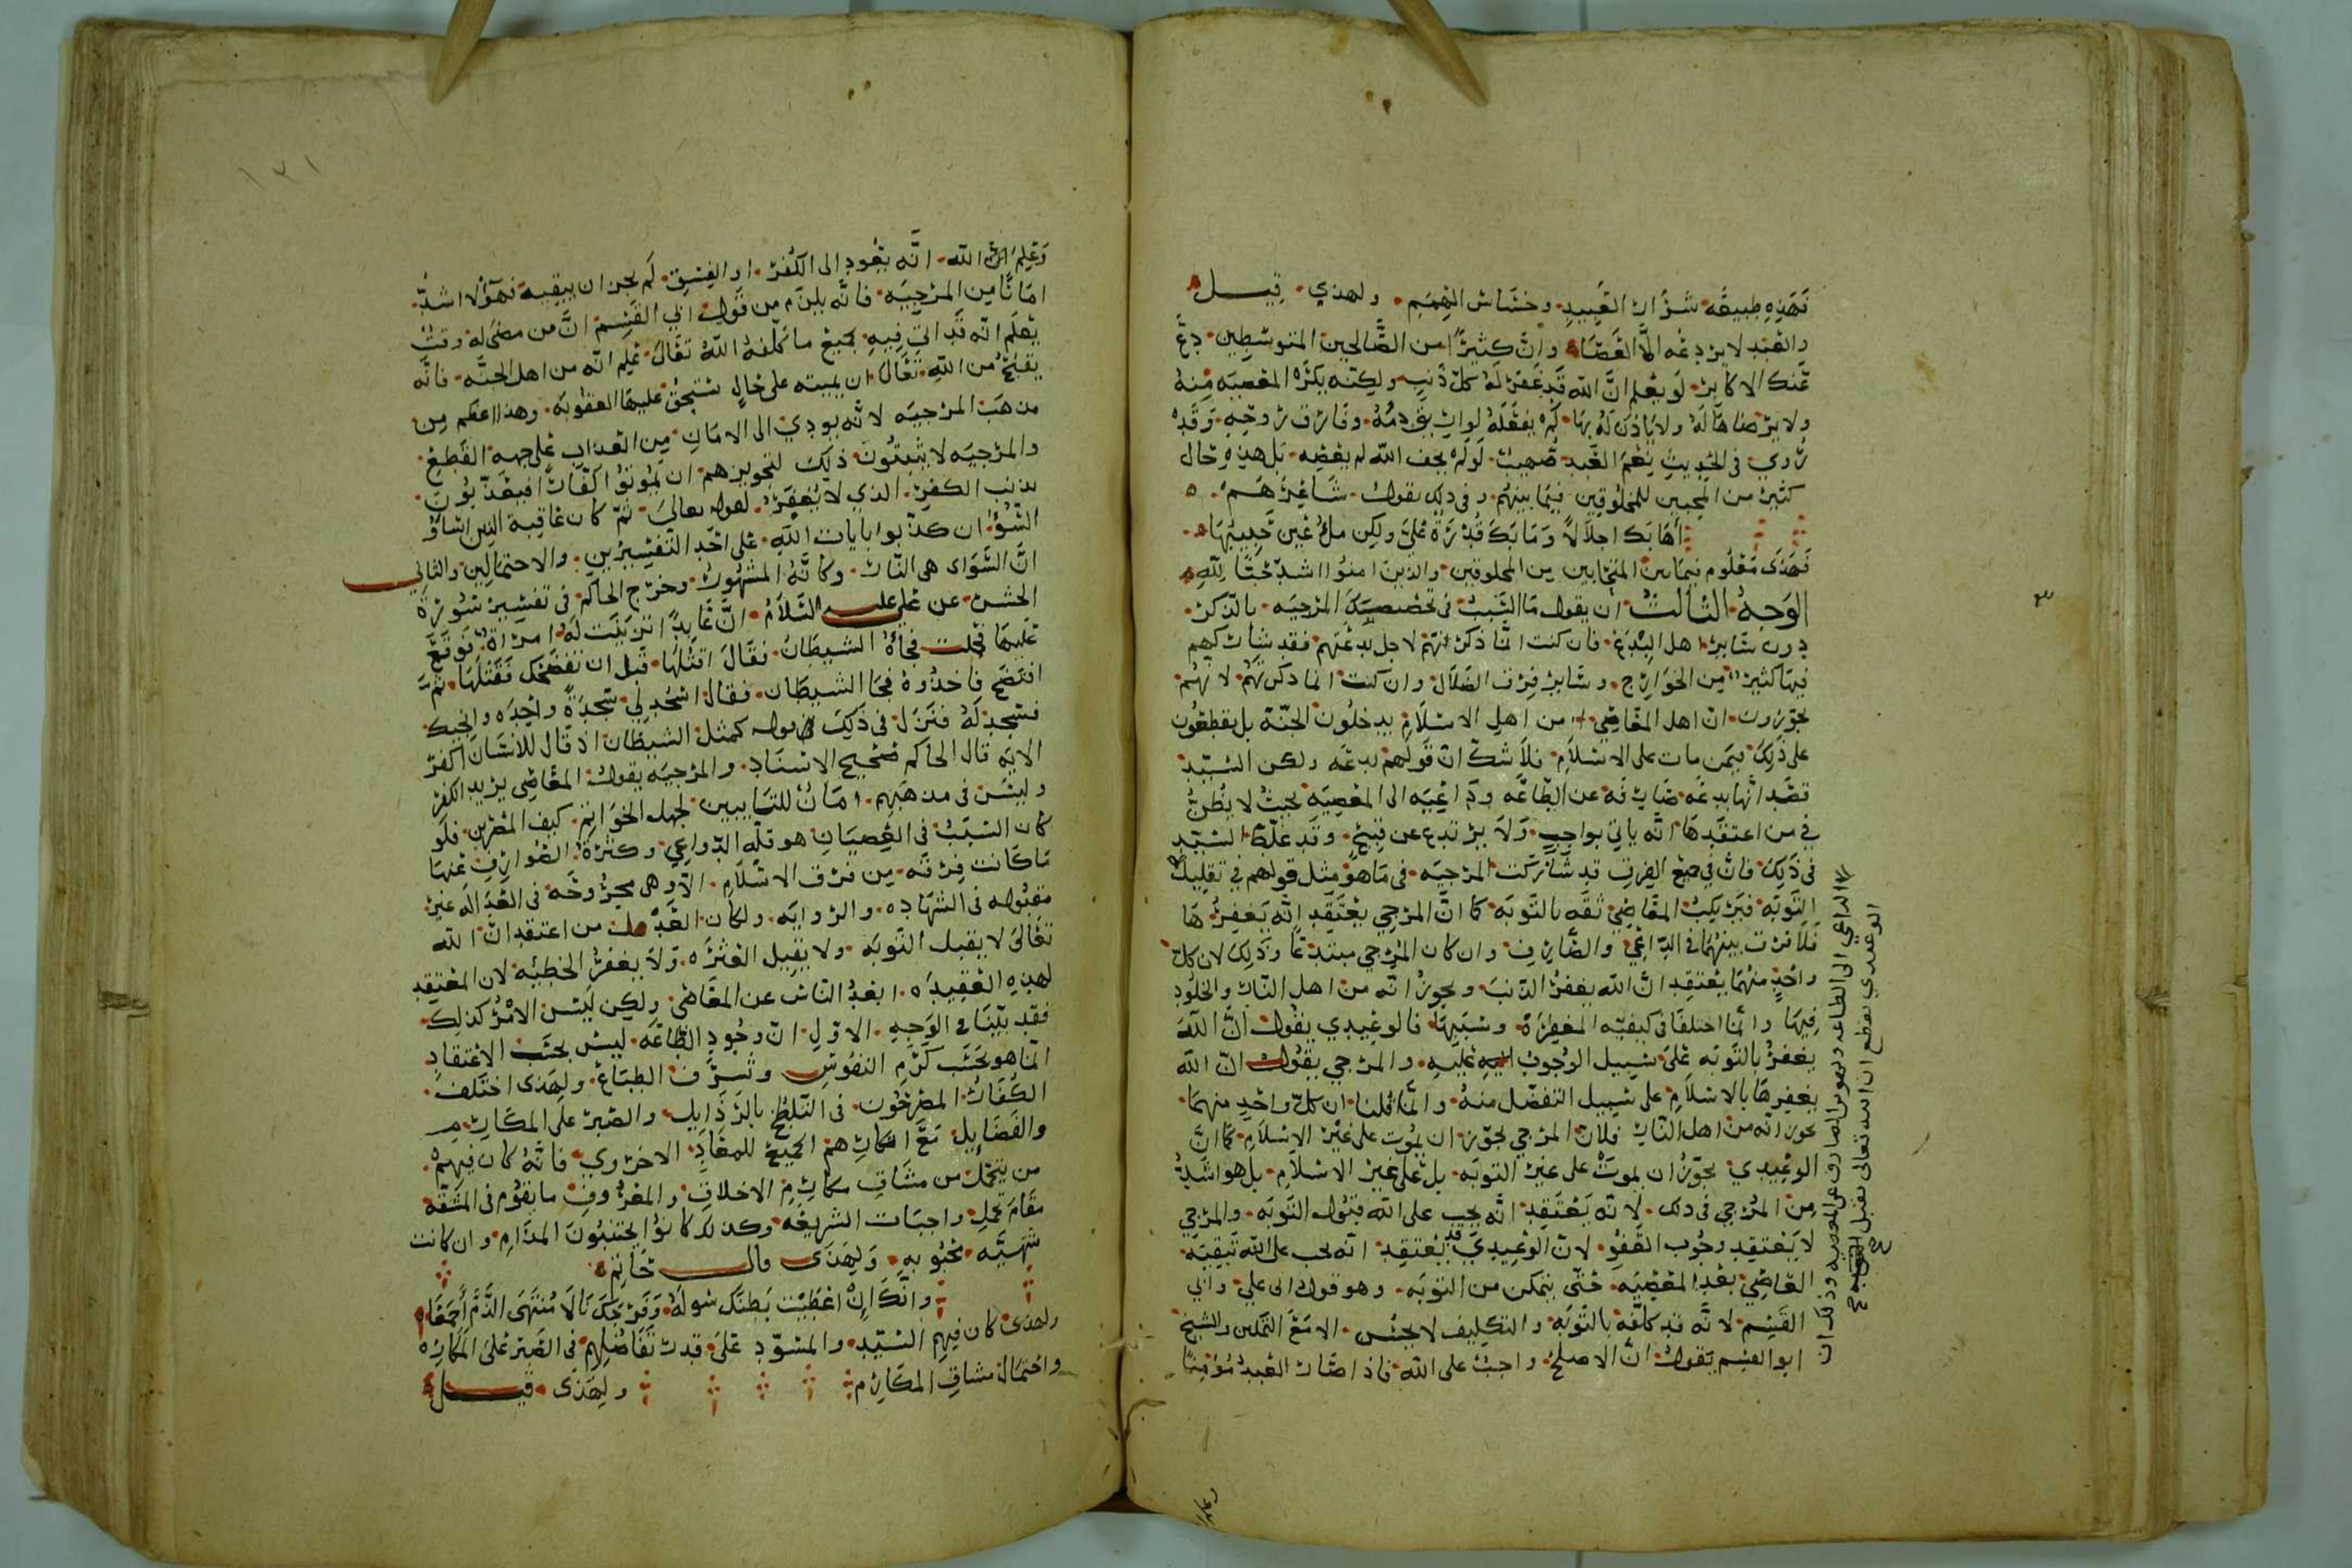 فهذه طبيعة شرار العبيد وخشاش الهمم ولهذى قيل
والعبد لا يردعه الا العصا وان كثيرا من الصالحين المتوسطين دع
عنك الاكابر لو يعلم ان الله قد غفر له كل ذنب ولكنه يكره المعصية منه
ولا يرضاها له ولا ياذن له بها لم يفعله لو اريق دمه وفارق روحه وقد
روي في الحديث نعم العبد صهيب لو لم يخف الله لم يعصه بل هذه حال
كثير من المحبين للمخلوقين فيما بينهم وفي ذلك يقول شاعرهم
أهابك اجلالا وما بك قدرة علي ولكن ملء عين حبيبها
فهذى معلوم فيما بين المتحابين من المخلوقين والذين امنوا اشد حبا لله
الوجه الثالث أن يقول ما السبب في تخصيصك المرجيه بالذكر
دون سائر اهل البدع فان كنت انما ذكرتهم لاجل بدعتهم فقد شاركهم
فيها كثير من الخوارج وسائر فرق الضلال وان كنت انما ذكرتهم لانهم
يجوزون ان اهل المعاصي من اهل الاسلام يدخلون الجنة بل يقطعون
على ذلك فيمن مات على الاسلام فلا شك ان قولهم بدعه ولكن السيد
قصد انها بدعه صارفه عن الطاعه وداعيه الى المعصيه بحيث لا يظن
في من اعتقدها انه ياتي بواجب ولا يرتدع عن قبيح وقد غلط السيد
في ذلك فان جميع الفرق قد شاركت المرجيه في ما هو مثل قولهم في تقليل
التوبه فيرتكب المعاصي ثقه بالتوبه كما ان المرجي يعتقد انه يغفرها
فلا فرق بينهما في الداعي والصارف وان كان المرجي مبتدعا وذلك لان كل
واحد منهما يعتقد ان الله يغفر الذنب ويجوز انه من اهل النار والخلود
فيها وانما اختلفا في كيفيه المغفرة وسببها فالوعيدي يقول ان الله
يغفر بالتوبه على سبيل الوجوب عليه والمرجي يقول ان الله
يغفرها بالاسلام على سبيل التفضل منه وانما قلنا ان كل واحد منهما
يجوز انه من اهل النار فلان المرجي يجوز ان يموت على غير الاسلام كما ان
الوعيدي يجوز ان يموت على غير التوبه بل على غير الاسلام بل هو اشد
من المرجي في ذلك لانه يعتقد انه يجب على الله قبول التوبه والمرجي
لا يعتقد وجوب العفو لان الوعيدي قد يعتقد انه يجب على الله تبقيه
العاصي بعد المعصيه حتى يتمكن من التوبه وهو قول ابى علي وابي
القسم لانه قد كلفه بالتوبه والتكليف لا يحسن الا مع التمكين والشيخ
ابو القسم يقول ان الاصلح واجب على الله فاذا صار العبد مؤمنا
وعلم الله انه يعود الى الكفر او الفسق لم يجز ان يبقيه فهؤلا اشد
امانا من المرجيه فانه يلزم من قول ابي القسم ان من مضى له وقت
يعلم انه قد اتى فيه بجميع ما كلفه الله تعالى علم انه من اهل الجنه فانه
يقبح من الله تعالى ان يميته على حال يستحق عليها العقوبه وهذا اعظم من
مذهب المرجيه لانه يودي الى الامان من العذاب على جهه القطع
والمرجيه لا يثبتون ذلك لتجويزهم ان يموتوا كفارا فيعذبون
بذنب الكفر الذي لا يغفر لقوله تعالى ثم كان عاقبة الذين اساؤ
السوأى ان كذبوا بايات الله على احد التفسيرين والاحتمالين والثاني
ان السواى هى النار وكانه المشهور وخرج الحاكم في تفسير سورة
الحشر عن علي عليه السلام ان عابدا تزينت له امراة فوقع
عليها فحملت فجاة الشيطان فقال اقتلها قبل ان تفضحك فقتلها ثم
افتضح فاخذوه فجا الشيطان فقال اسجد لي سجدة واحده وانجيك
فسجد له فنزل في ذلك قوله كمثل الشيطان اذ قال للانسان اكفر
الايه قال الحاكم صحيح الاسناد والمرجيه يقول المعاصي يريد الكفر
وليس في مذهبهم امان للتايبين لجهل الخواتم كيف المصرين فلو
كان السبب في العصيان هو قله الدواعي وكثرة الصوارف عنها
ما كانت فرقه من فرق الاسلام الا وهى مجروحه في العداله غير
مقبوله في الشهاده والروايه ولكان من اعتقد ان الله
تعالى لا يقبل التوبه ولا يقيل العثره ولا يغفر الخطيئه لان المعتقد
لهذه العقيده ابعد الناس عن المعاصي ولكن ليس الامر كذلك
فقد بينا في الوجه الاول ان وجود الطاعه ليس بحسب الاعتقاد
انما هو بحسب كرم النفوس وشرف الطباع ولهذى اختلف
الكفار المصرحون في التلطخ بالرذايل والصبر على المكارم
والفضايل مع انكارهم الجميع للمعاد الاخروي فانه كان فيهم
من يتحمل من مشاق مكارم الاخلاق والمعروف ما يقوم في المشقه
مقام تحمل واجبات الشريعه وكذلك كانوا يجتنبون المذام وان كانت
شهيه محبوبه ولهذى قال حاتم
وانك إن اعطيت بطنك سوله وفرجك نالا منتهى الذم أجمعا
ولهذى كان فيهم السيد والمسود على قدر تفاضلهم في الصبر على المكاره
واحتمال مشاق المكارم ولهذى قيل